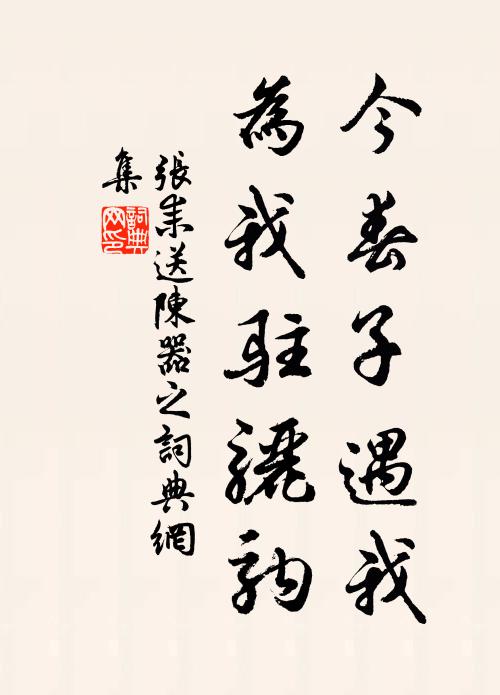 今春子遇我
為我駐驪駒
張耒送陳器之詞典網
集
詞典
网印